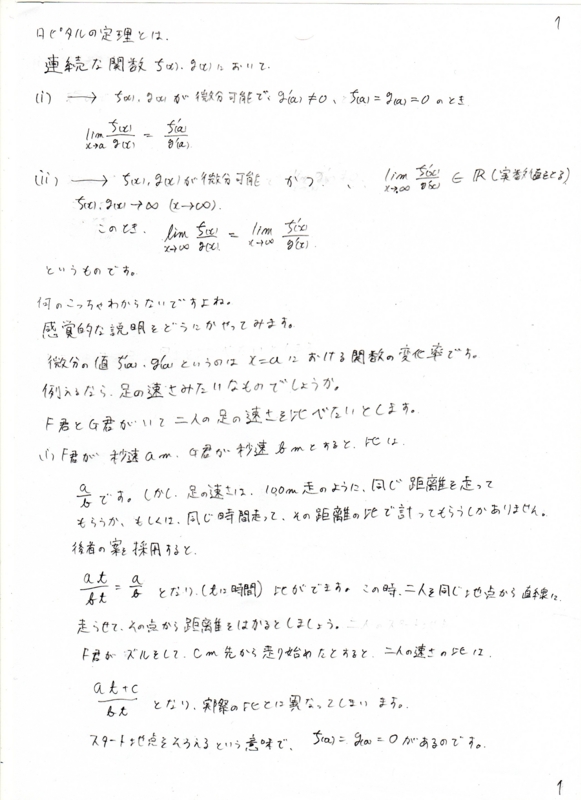 1
ロピタルの定理とは、
連続な関数 f(x), g(x) において
(i) → f(x), g(x) が微分可能で、g'(a) ≠ 0、f(a) = g(a) = 0 のとき
lim_{x→a} f(x)/g(x) = f'(a)/g'(a).
(ii) → f(x), g(x) が微分可能 かつ 、 lim_{x→∞} f'(x)/g'(x) ∈ ℝ (実数値をとる)
f(x), g(x) → ∞ (x→∞).
このとき、 lim_{x→∞} f(x)/g(x) = lim_{x→∞} f'(x)/g'(x).
というものです。
何のこっちゃわからないですよね。
感覚的な説明をどうにかやってみます。
微分の値 f'(a), g'(a) というのは x=a における関数の変化率です。
例えるなら、足の速さみたいなものでしょうか。
F君とG君がいて 二人の足の速さを比べたいとします。
(i) F君が 秒速 a m、G君が 秒速 b m とすると、比は、
a/b です。しかし、足の速さは、100m 走のように、同じ距離を走って
もらうか、もしくは、同じ時間走って、その距離の比で計ってもらうしかありません。
後者の案を採用すると、
at/bt = a/b となり、(tは時間) 比がでます。この時、二人を同じ地点から直線に
走らせて、その点から距離をはかるとしましょう。
F君が ズルをして、c m 先から走り始めたとすると、二人の速さの比は、
at+c/bt となり、実際の比とは異なってしまいます。
スタート地点をそろえるという意味で、 f(a) = g(a) = 0 があるのです。
1